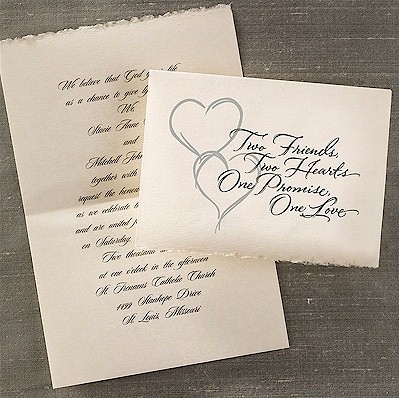 We believe that God
life
as a chance to give
We,
Stacie Anne
and
Mitchell John
together with
request the honour
as we celebrate
and are united
on Saturday,
Two thousand
at one o'clock in the afternoon
St. Irenaus Catholic Church
1499 Stanhope Drive
St. Louis, Missouri
Two Friends,
Two Hearts
One Promise,
One Love